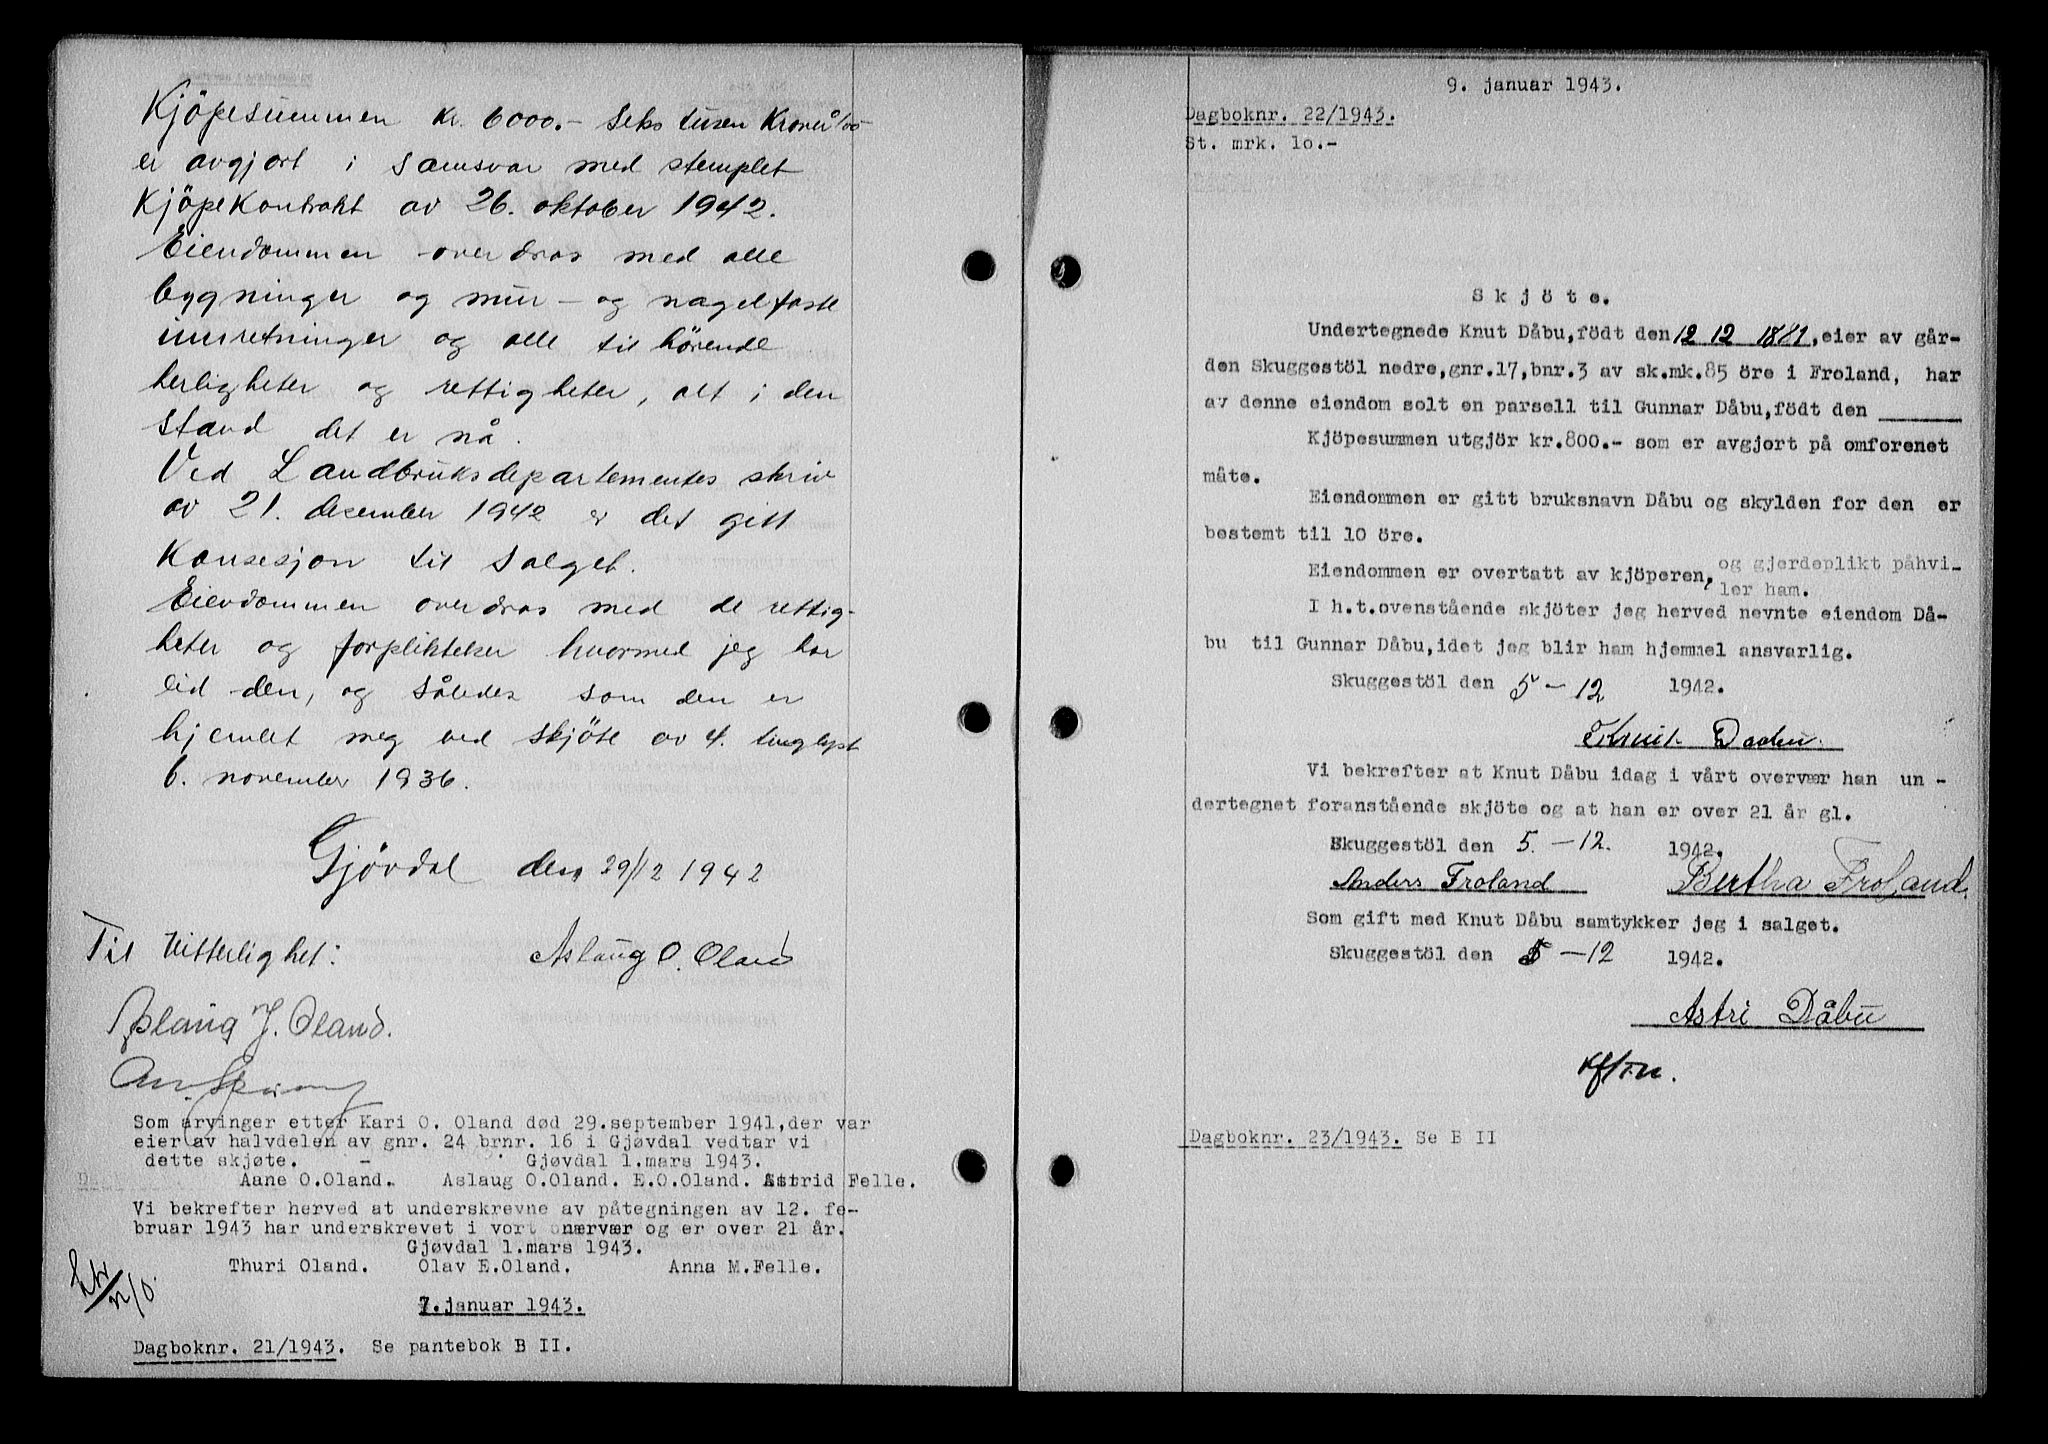 Kjöpesummen kr. 6000.- Seks tusen Kroner 0/00
er avgjort i samsvar med stemplet
Kjöpekontrakt av 26. oktober 1942.
Eiendommen overdras med alle
bygninger og mur- og nagelfaste
innretninger og alle til hörende
herligheter og rettigheter, alt i den
stand det er nå.
Ved Landbruksdepartementes skriv
av 21. desember 1942 er det gitt
Konsesjon til salget.
Eiendommen overdras med de rettig-
heter og forplikteker hvormed jeg har
eid den, og således som den er
hjemlet meg ved skjöte av 4. tinglyst
6. november 1936.
Gjövdal den 29/12 1942
Til Vitterlighet: Aslaug O. Oland
Aslaug J. Oland.
Som arvinger etter Kari O. Oland død 29.september 1941,der var
eier av halvdelen av gnr. 24 brnr. 16 i Gjøvdal vedtar vi
dette skjøte. - Gjøvdal 1.mars 1943.
Aane O.Oland. Aslaug O.Oland. E.O.Oland. Astrid Felle.
Vi bekrefter herved at underskrevne av påtegningen av 12. fe-
bruar 1943 har underskrevet i vort nærvær og er over 21 år.
Gjøvdal 1.mars 1943.
Thuri Oland. Olav E.Oland. Anna M.Felle.
7.januar 1943.
Dagboknr. 21/1943. Se pantebok B II.
9. januar 1943.
Dagboknr. 22/1943.
St. mrk. 1o.-
Skjöte.
Undertegnede Knut Dåbu,födt den 12 12 1881,eier av går-
den Skuggestöl nedre,gnr.17,bnr.3 av sk.mk.85 öre i Froland, har
av denne eiendom solt en parsell til Gunnar Dåbu,födt den
Kjöpesummen utgjör kr.800.- som er avgjort på omforenet
måte.
Eiendommen er gitt bruksnavn Dåbu og skylden for den er
bestemt til 10 öre.
Eiendommen er overtatt av kjöperen, og gjerdeplikt påhvi-
ler ham.
I h.t.ovenstående skjöter jeg herved nevnte eiendom Då-
bu til Gunnar Dåbu,idet jeg blir ham hjemmel ansvarlig.
Skuggestöl den 5-12 1942.
Knut Daabu.
Vi bekrefter at Knut Dåbu idag i vårt overvær han un-
dertegnet foranstående skjöte og at han er over 21 år gl.
Skuggestöl den 5.-12. 1942.
Anders Froland Bertha Froland.
Som gift med Knut Dåbu samtykker jeg i salget.
Skuggestöl den 5-12 1942.
Astri Dåbu
Dagboknr. 23/1943. Se B II